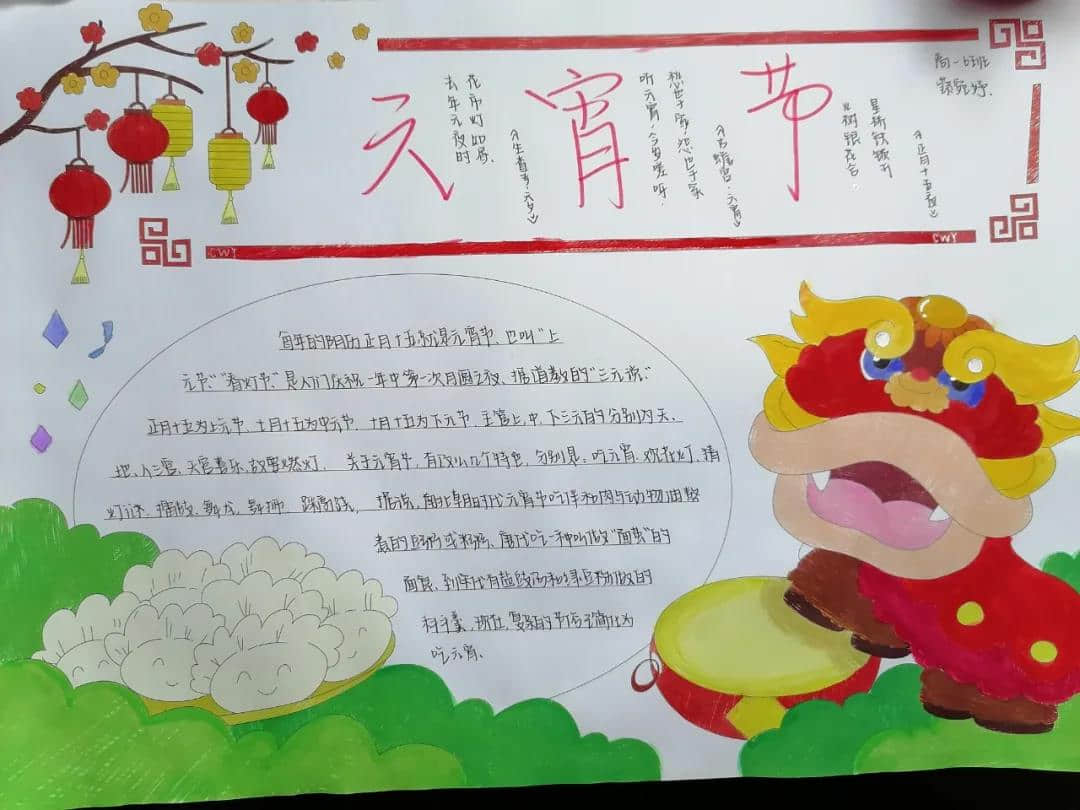 元宵节
高一6班
去年元夜时
花市灯如昼
《生查子·元夕》
听元宵，今岁嗟呀
愁也千家，怨也千家
《·元宵》
火树银花合
星桥铁锁开
《正月十五夜》
CWY
CWY
每年的阴历正月十五就是元宵节，也叫"上
元节"，"看灯节"，是人们庆祝一年中第一次月圆之夜，据道教的"三元说"
正月十五为上元节，七月十五为中元节，十月十五为下元节，主管上、中、下三元的分别为天、
地、人三官，天官喜乐，故要燃灯，关于元宵节，有以几个特色，分别是：吃元宵，观花灯，猜
灯谜，舞龙，舞狮，踩高跷，据说，南北朝时代元宵节吃伴和肉与动物油熬
煮的或粥，唐代吃一种叫做"面茧"的
面食，到代有盐豉而和绿豆粉做的
科斗羹，现在，复杂的节后简化为
吃元宵。